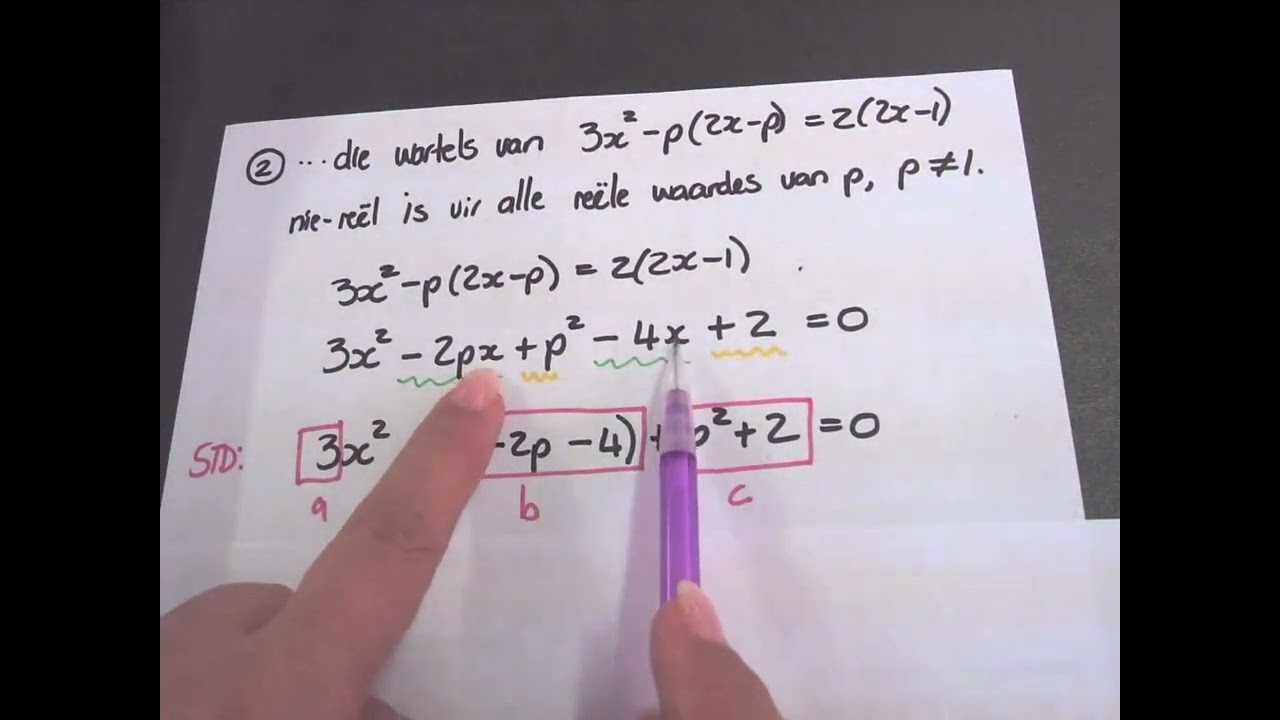 ② ... die wortels van 3x² - p(2x-p) = 2(2x-1)
nie-reël is vir alle reële waardes van p, p ≠ 1.
3x² - p(2x-p) = 2(2x-1)
3x² - 2px + p² - 4x + 2 = 0
STD: 3x² -2p - 4) + p² + 2 = 0
a b c